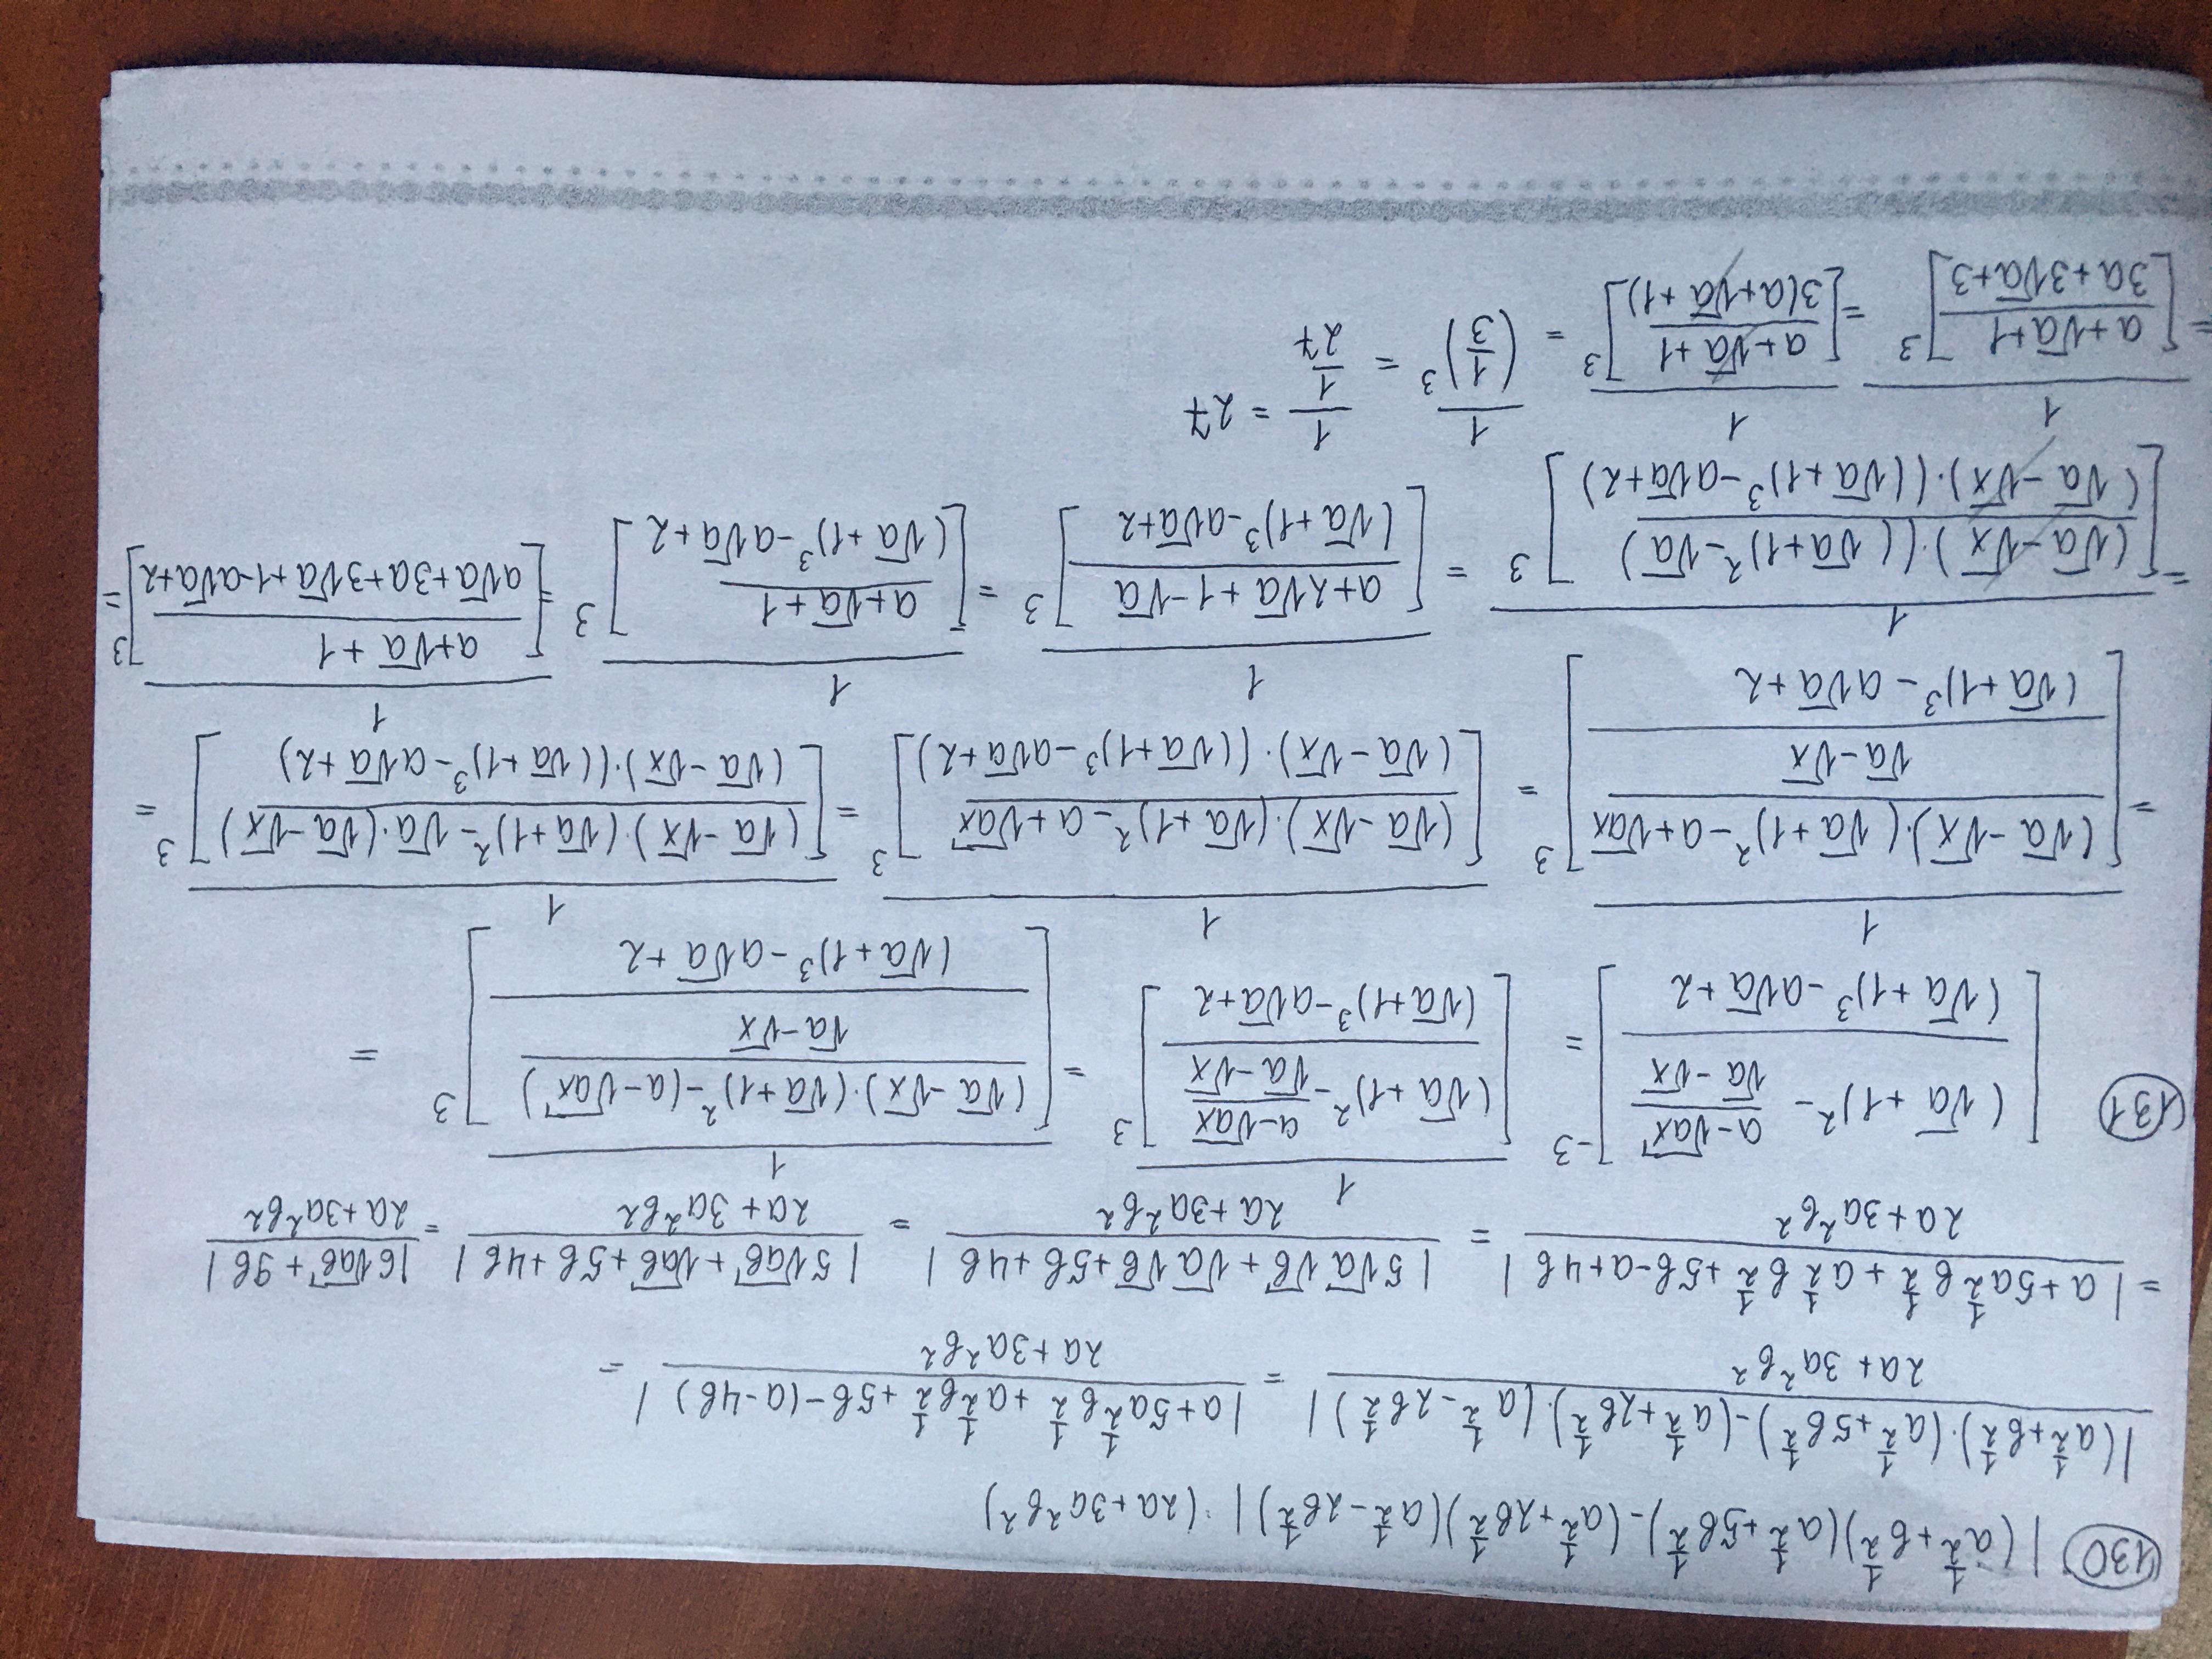 130 |(a^{1/2}+b^{1/2})(a^{1/2}+5b^{1/2})-(a^{1/2}+2b^{1/2})(a^{1/2}-2b^{1/2})| : (2a+3a²b²)
\frac{|(a^{1/2}+b^{1/2})·(a^{1/2}+5b^{1/2})-(a^{1/2}+2b^{1/2})·(a^{1/2}-2b^{1/2})|}{2a+3a²b²} = \frac{|a+5a^{1/2}b^{1/2}+a^{1/2}b^{1/2}+5b-(a-4b)|}{2a+3a²b²} =
= \frac{|a+5a^{1/2}b^{1/2}+a^{1/2}b^{1/2}+5b-a+4b|}{2a+3a²b²} = \frac{|5√a√b+√a√b+5b+4b|}{2a+3a²b²} = \frac{|5√(ab)+√(ab)+5b+4b|}{2a+3a²b²} = \frac{|6√(ab)+9b|}{2a+3a²b²}
131 [\frac{(√a+1)²-\frac{a-√(ax)}{√a-√x}}{(√a+1)³-a√a+2}]^{-3} = \frac{1}{[\frac{(√a+1)²-\frac{a-√(ax)}{√a-√x}}{(√a+1)³-a√a+2}]^3} = \frac{1}{[\frac{\frac{(√a-√x)·(√a+1)²-(a-√(ax))}{√a-√x}}{(√a+1)³-a√a+2}]^3} =
= \frac{1}{[\frac{\frac{(√a-√x)·(√a+1)²-a+√(ax)}{√a-√x}}{(√a+1)³-a√a+2}]^3} = \frac{1}{[\frac{(√a-√x)·(√a+1)²-a+√(ax)}{(√a-√x)·((√a+1)³-a√a+2)}]^3} = \frac{1}{[\frac{(√a-√x)·(√a+1)²-√a·(√a-√x)}{(√a-√x)·((√a+1)³-a√a+2)}]^3} =
= \frac{1}{[\frac{(√a-√x)·((√a+1)²-√a)}{(√a-√x)·((√a+1)³-a√a+2)}]^3} = \frac{1}{[\frac{a+2√a+1-√a}{(√a+1)³-a√a+2}]^3} = \frac{1}{[\frac{a+√a+1}{(√a+1)³-a√a+2}]^3} = \frac{1}{[\frac{a+√a+1}{a√a+3a+3√a+1-a√a+2}]^3} =
= \frac{1}{[\frac{a+√a+1}{3a+3√a+3}]^3} = \frac{1}{[\frac{a+√a+1}{3(a+√a+1)}]^3} = \frac{1}{(\frac{1}{3})^3} = \frac{1}{\frac{1}{27}} = 27